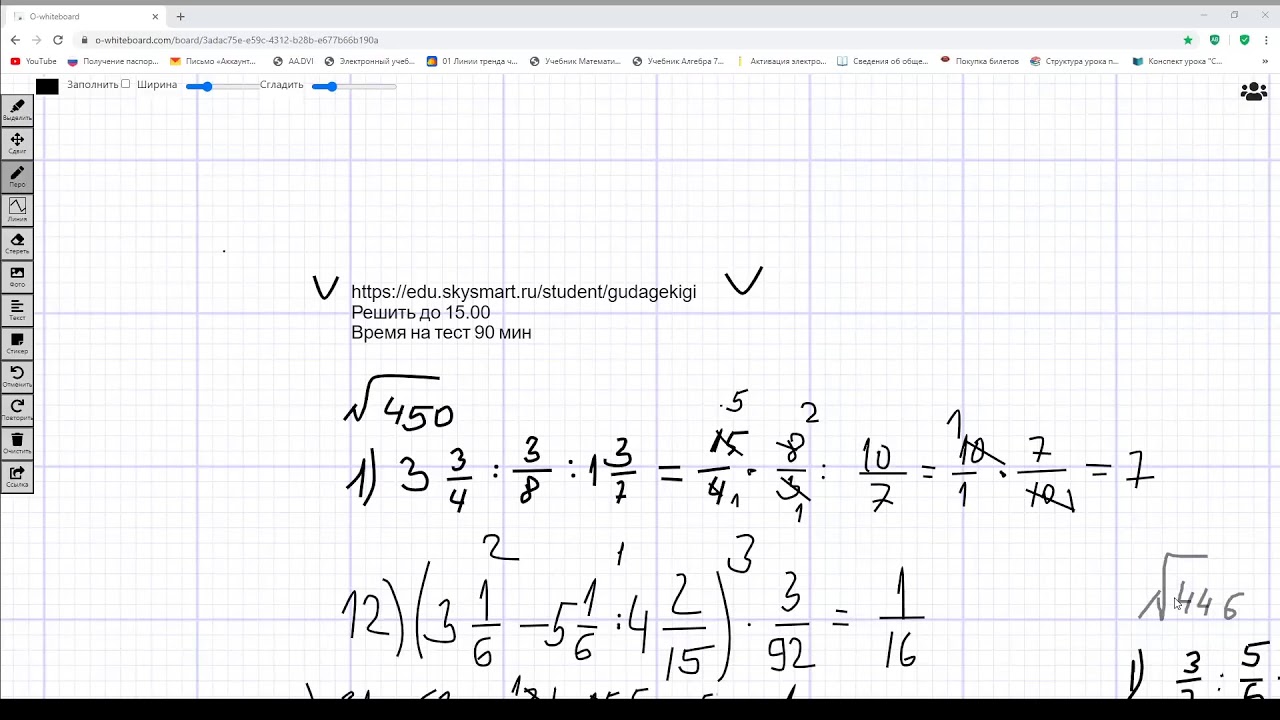 O-whiteboard
o-whiteboard.com/board/3adac75e-e59c-4312-b28b-e677b66b190a
YouTube Получение паспор... Письмо «Аккаунт... AA.DVI Электронный учеб... 01 Линии тренда ч... Учебник Математи... Учебник Алгебра 7... Активация электро... Сведения об обще... Покупка билетов Структура урока п... Конспект урока "С... »
Заполнить Ширина Сгладить
Выделить
Сдвиг
Перо
Линия
Стереть
Фото
Текст
Стикер
Отменить
Повторить
Очистить
Ссылка
V https://edu.skysmart.ru/student/gudagekigi V
Решить до 15.00
Время на тест 90 мин
√450
1) 3 3/4 : 3/8 : 1 3/7 = 15/4 · 8/3 : 10/7 = 10/1 · 7/10 = 7
5 2 1 1 1 1
2 1 3
12) (3 1/6 – 5 1/6 : 4 2/15) · 3/92 = 1/16
√446
1) 3/7 : 5/6